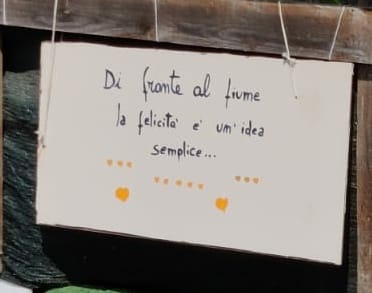 Di fronte al fiume
la felicita' e' un' idea
semplice...